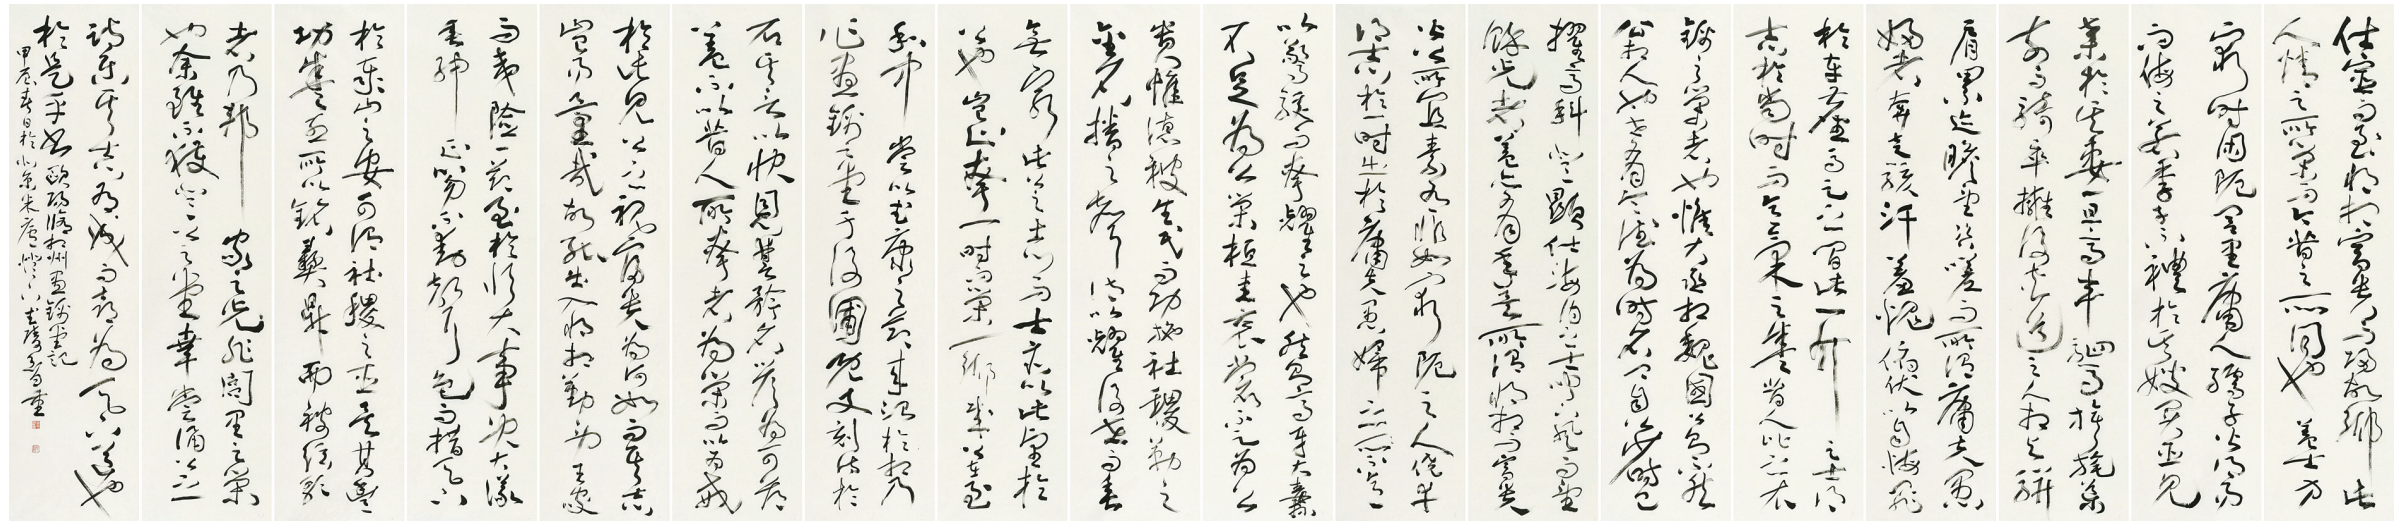 仕宦而至將相富貴而歸故鄉此
人情之所榮而今昔之所同也蓋士方
窮時困阨閭里庸人孺子皆得易
而侮之若季子不禮於其嫂買臣見
棄於其妻一旦高車駟馬旗旄導
前而騎卒擁後夾道之人相與駢
肩累迹瞻望咨嗟而所謂庸夫愚
婦者奔走駭汗羞愧俯伏以自悔罪
於車塵馬足之間此一介之士得
志於當時而意氣之盛昔人比之衣
錦之榮者也惟大丞相魏國公則不然
公相人也世有令德為時名卿自公少時已
擢高科登顯仕海內之士聞下風而望
餘光者蓋亦有年矣所謂將相而富貴
皆公所宜素有非如窮阨之人僥倖
得志於一時出於庸夫愚婦之不意
以驚駭而夸耀之也然則高牙大纛
不足為公榮桓圭袞裳不足為公
貴惟德被生民而功施社稷勒之
金石播之聲詩以耀後世而垂
無窮此公之志而士亦以此望於
公也豈止夸一時而榮一鄉哉公在至
和中嘗以武康之節來治於相乃
作晝錦之堂于後圃既又刻詩於
石其言以快恩讎矜名譽為可薄
蓋不以昔人所夸者為榮而以為戒
於此見公之視富貴為何如而其志
豈易量哉故能出入將相勤勞王家
而夷險一節至於臨大事決大議
垂紳正笏不動聲色而措天下
於泰山之安可謂社稷之臣矣其豐
功盛烈所以銘彝鼎而被絃歌
者乃邦家之光非閭里之榮
也余雖不獲登公之堂幸嘗誦公之
詩樂公之志有成而喜為天下道也
於是乎書 歐陽脩相州晝錦堂記
甲辰春日於北京朱廬燈下